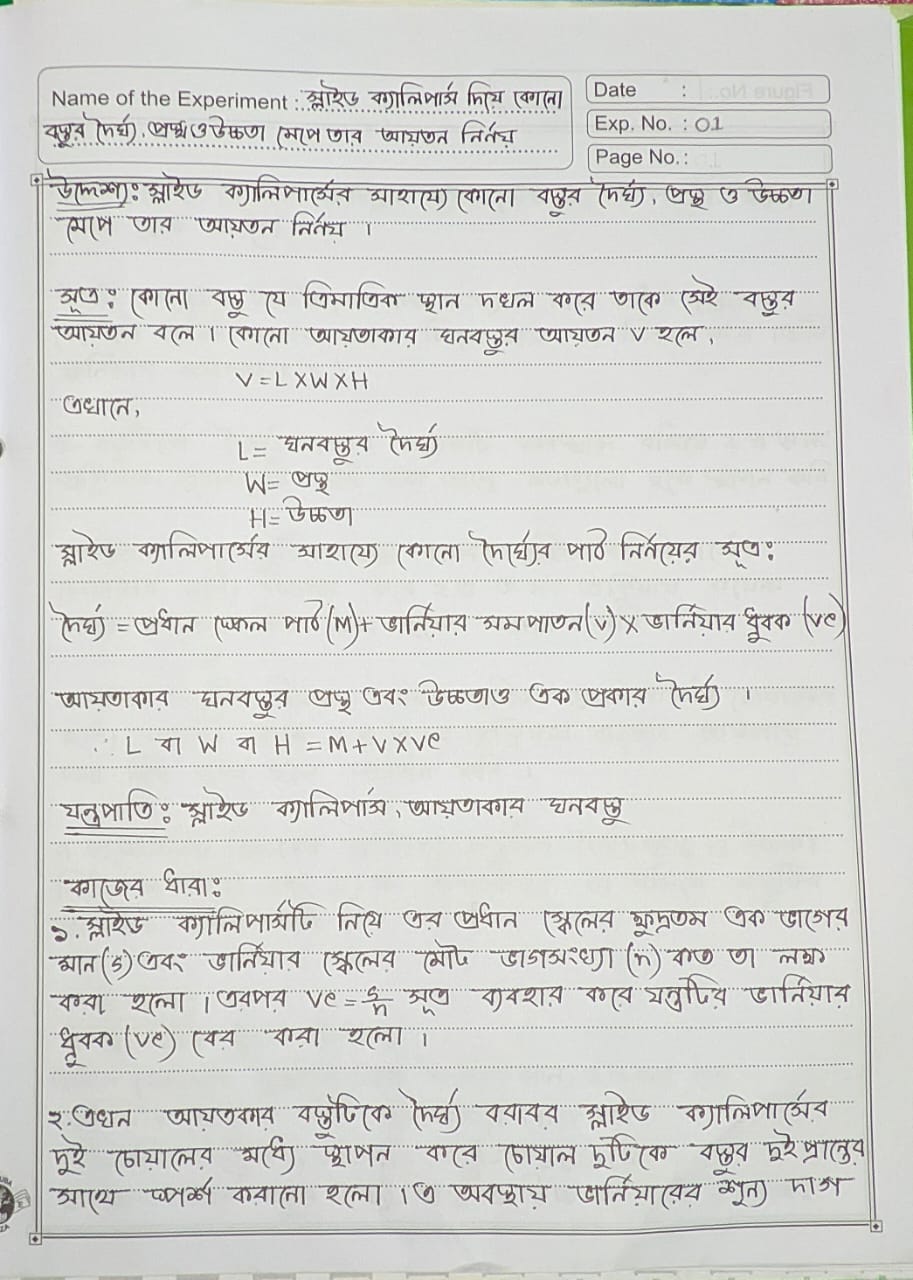 Name of the Experiment : স্লাইড ক্যালিপার্স দিয়ে কোনো
বস্তুর দৈর্ঘ্য, প্রস্থ ও উচ্চতা মেপে তার আয়তন নির্ণয়
Date :
Exp. No. : 01
Page No. :
উদ্দেশ্য: স্লাইড ক্যালিপার্সের সাহায্যে কোনো বস্তুর দৈর্ঘ্য, প্রস্থ ও উচ্চতা
মেপে তার আয়তন নির্ণয় ।
সূত্র: কোনো বস্তু যে ত্রিমাত্রিক স্থান দখল করে তাকে সেই বস্তুর
আয়তন বলে । কোনো আয়তাকার ঘনবস্তুর আয়তন V হলে,
V = L X W X H
এখানে,
L = ঘনবস্তুর দৈর্ঘ্য
W= প্রস্থ
H= উচ্চতা
স্লাইড ক্যালিপার্সের সাহায্যে কোনো দৈর্ঘ্যের পাঠ নির্ণয়ের সূত্র:
দৈর্ঘ্য = প্রধান স্কেল পাঠ (M)+ ভার্নিয়ার সমপাতন (V) X ভার্নিয়ার ধ্রুবক (VC)
আয়তাকার ঘনবস্তুর প্রস্থ এবং উচ্চতাও এক প্রকার দৈর্ঘ্য ।
∴ L বা W বা H = M+ V X VC
যন্ত্রপাতি: স্লাইড ক্যালিপার্স, আয়তাকার ঘনবস্তু
কাজের ধারা:
১. স্লাইড ক্যালিপার্সটি নিয়ে এর প্রধান স্কেলের ক্ষুদ্রতম এক ভাগের
মান (s) এবং ভার্নিয়ার স্কেলের মোট ভাগসংখ্যা (n) কত তা লক্ষ
করা হলো । এরপর VC = s/n সূত্র ব্যবহার করে যন্ত্রটির ভার্নিয়ার
ধ্রুবক (VC) বের করা হলো ।
২. এখন আয়তকার বস্তুটিকে দৈর্ঘ্য বরাবর স্লাইড ক্যালিপার্সের
দুই চোয়ালের মধ্যে স্থাপন করে চোয়াল দুটিকে বস্তুর দুই প্রান্তের
সাথে স্পর্শ করানো হলো । এ অবস্থায় ভার্নিয়ারের শূন্য দাগ